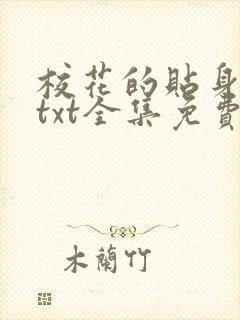 校花的貼身
txt全集免費
木蘭竹